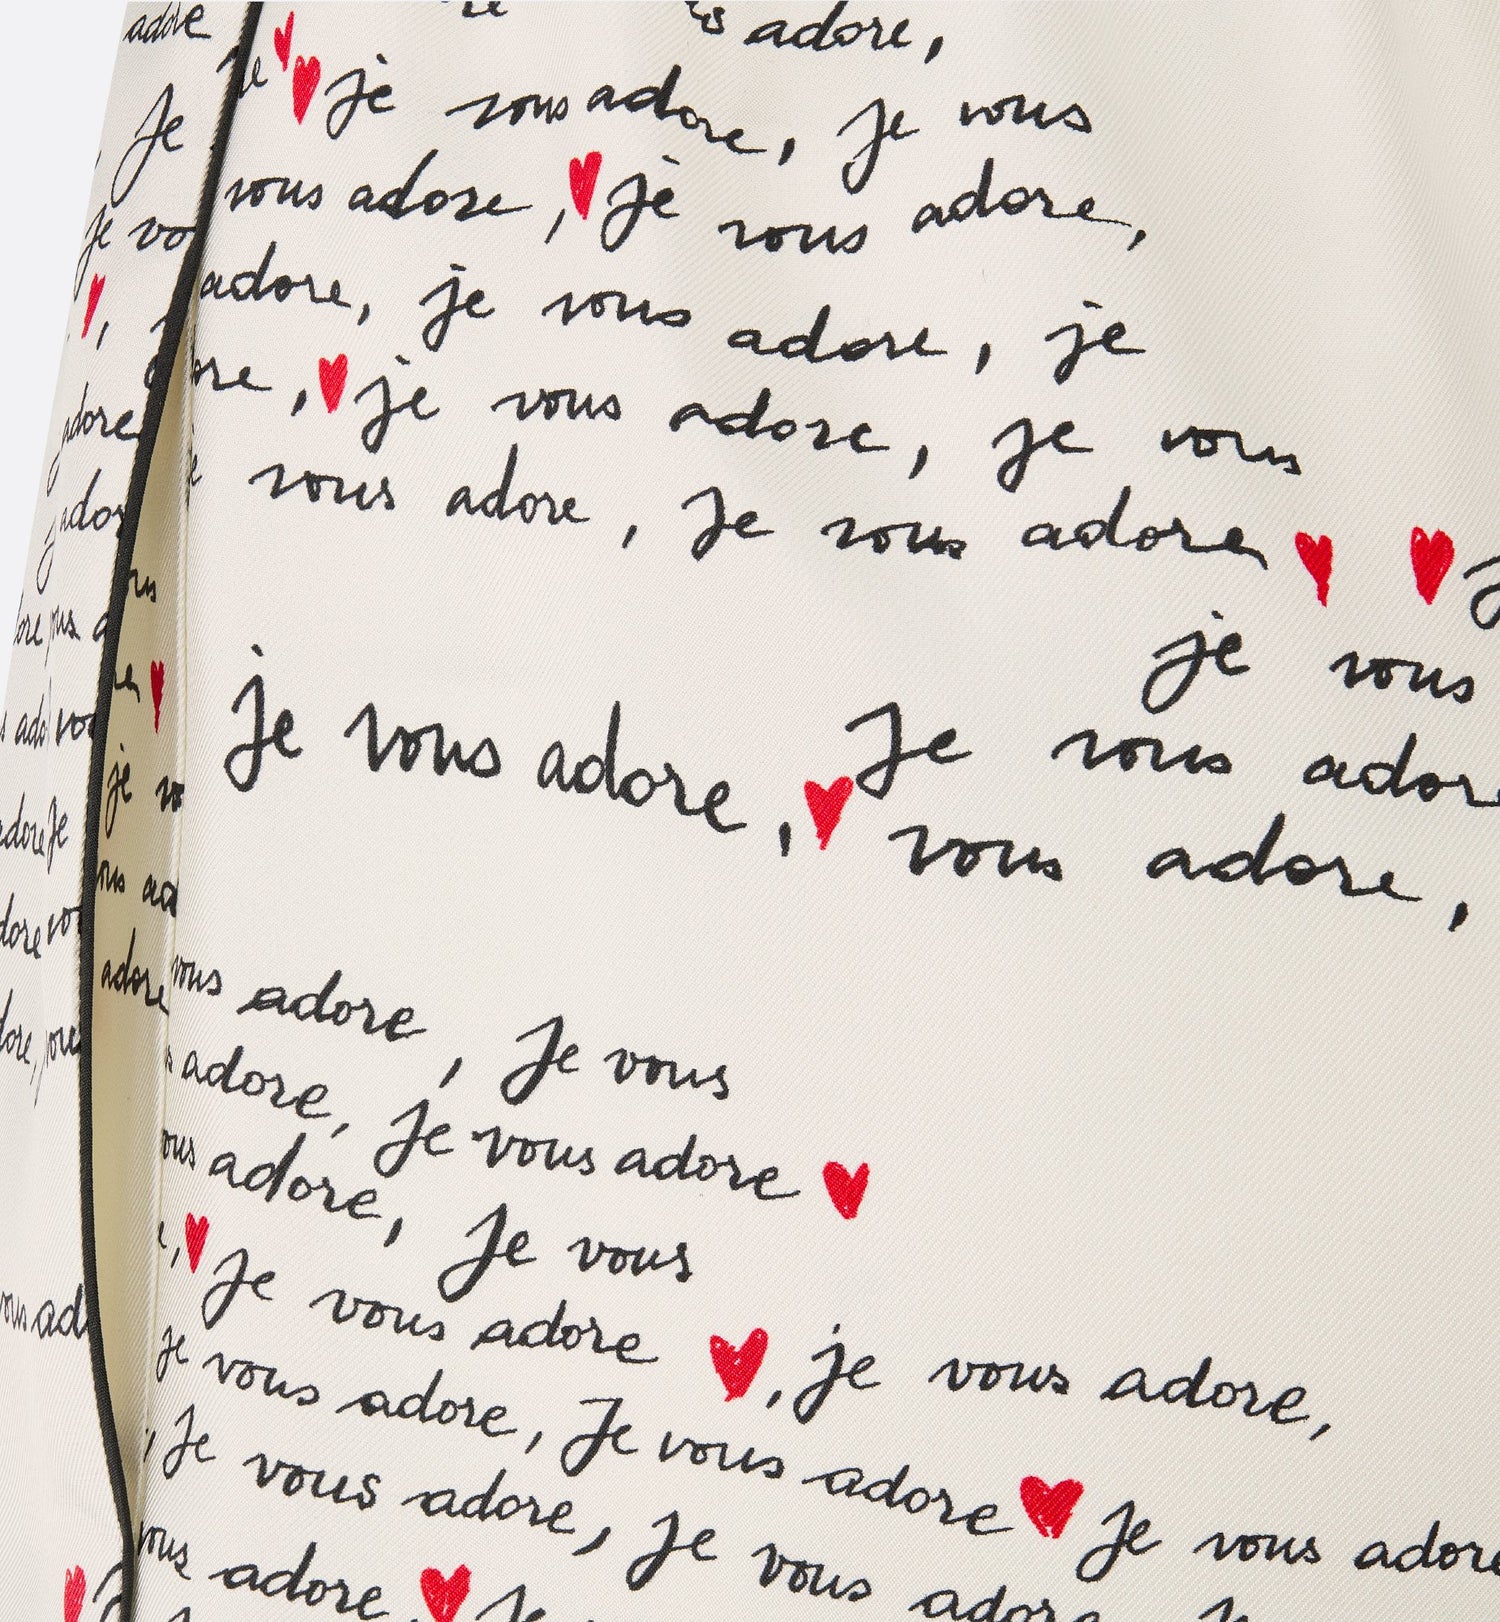 adore
adore,
je vous adore, je vous
Je
vous adore, je vous adore,
je vo
adore, je vous adore, je
je vous adore, je vous
adore
vous adore, je vous adore
je vous
je vous adore, je vous
vous adore,
je vo
adore
vous adore, je vous
adore, je vous adore
adore, je vous
je vous adore, je vous adore,
je vous adore, je vous adore je vous adore
, je vous adore, je vous adore
vous adore, je